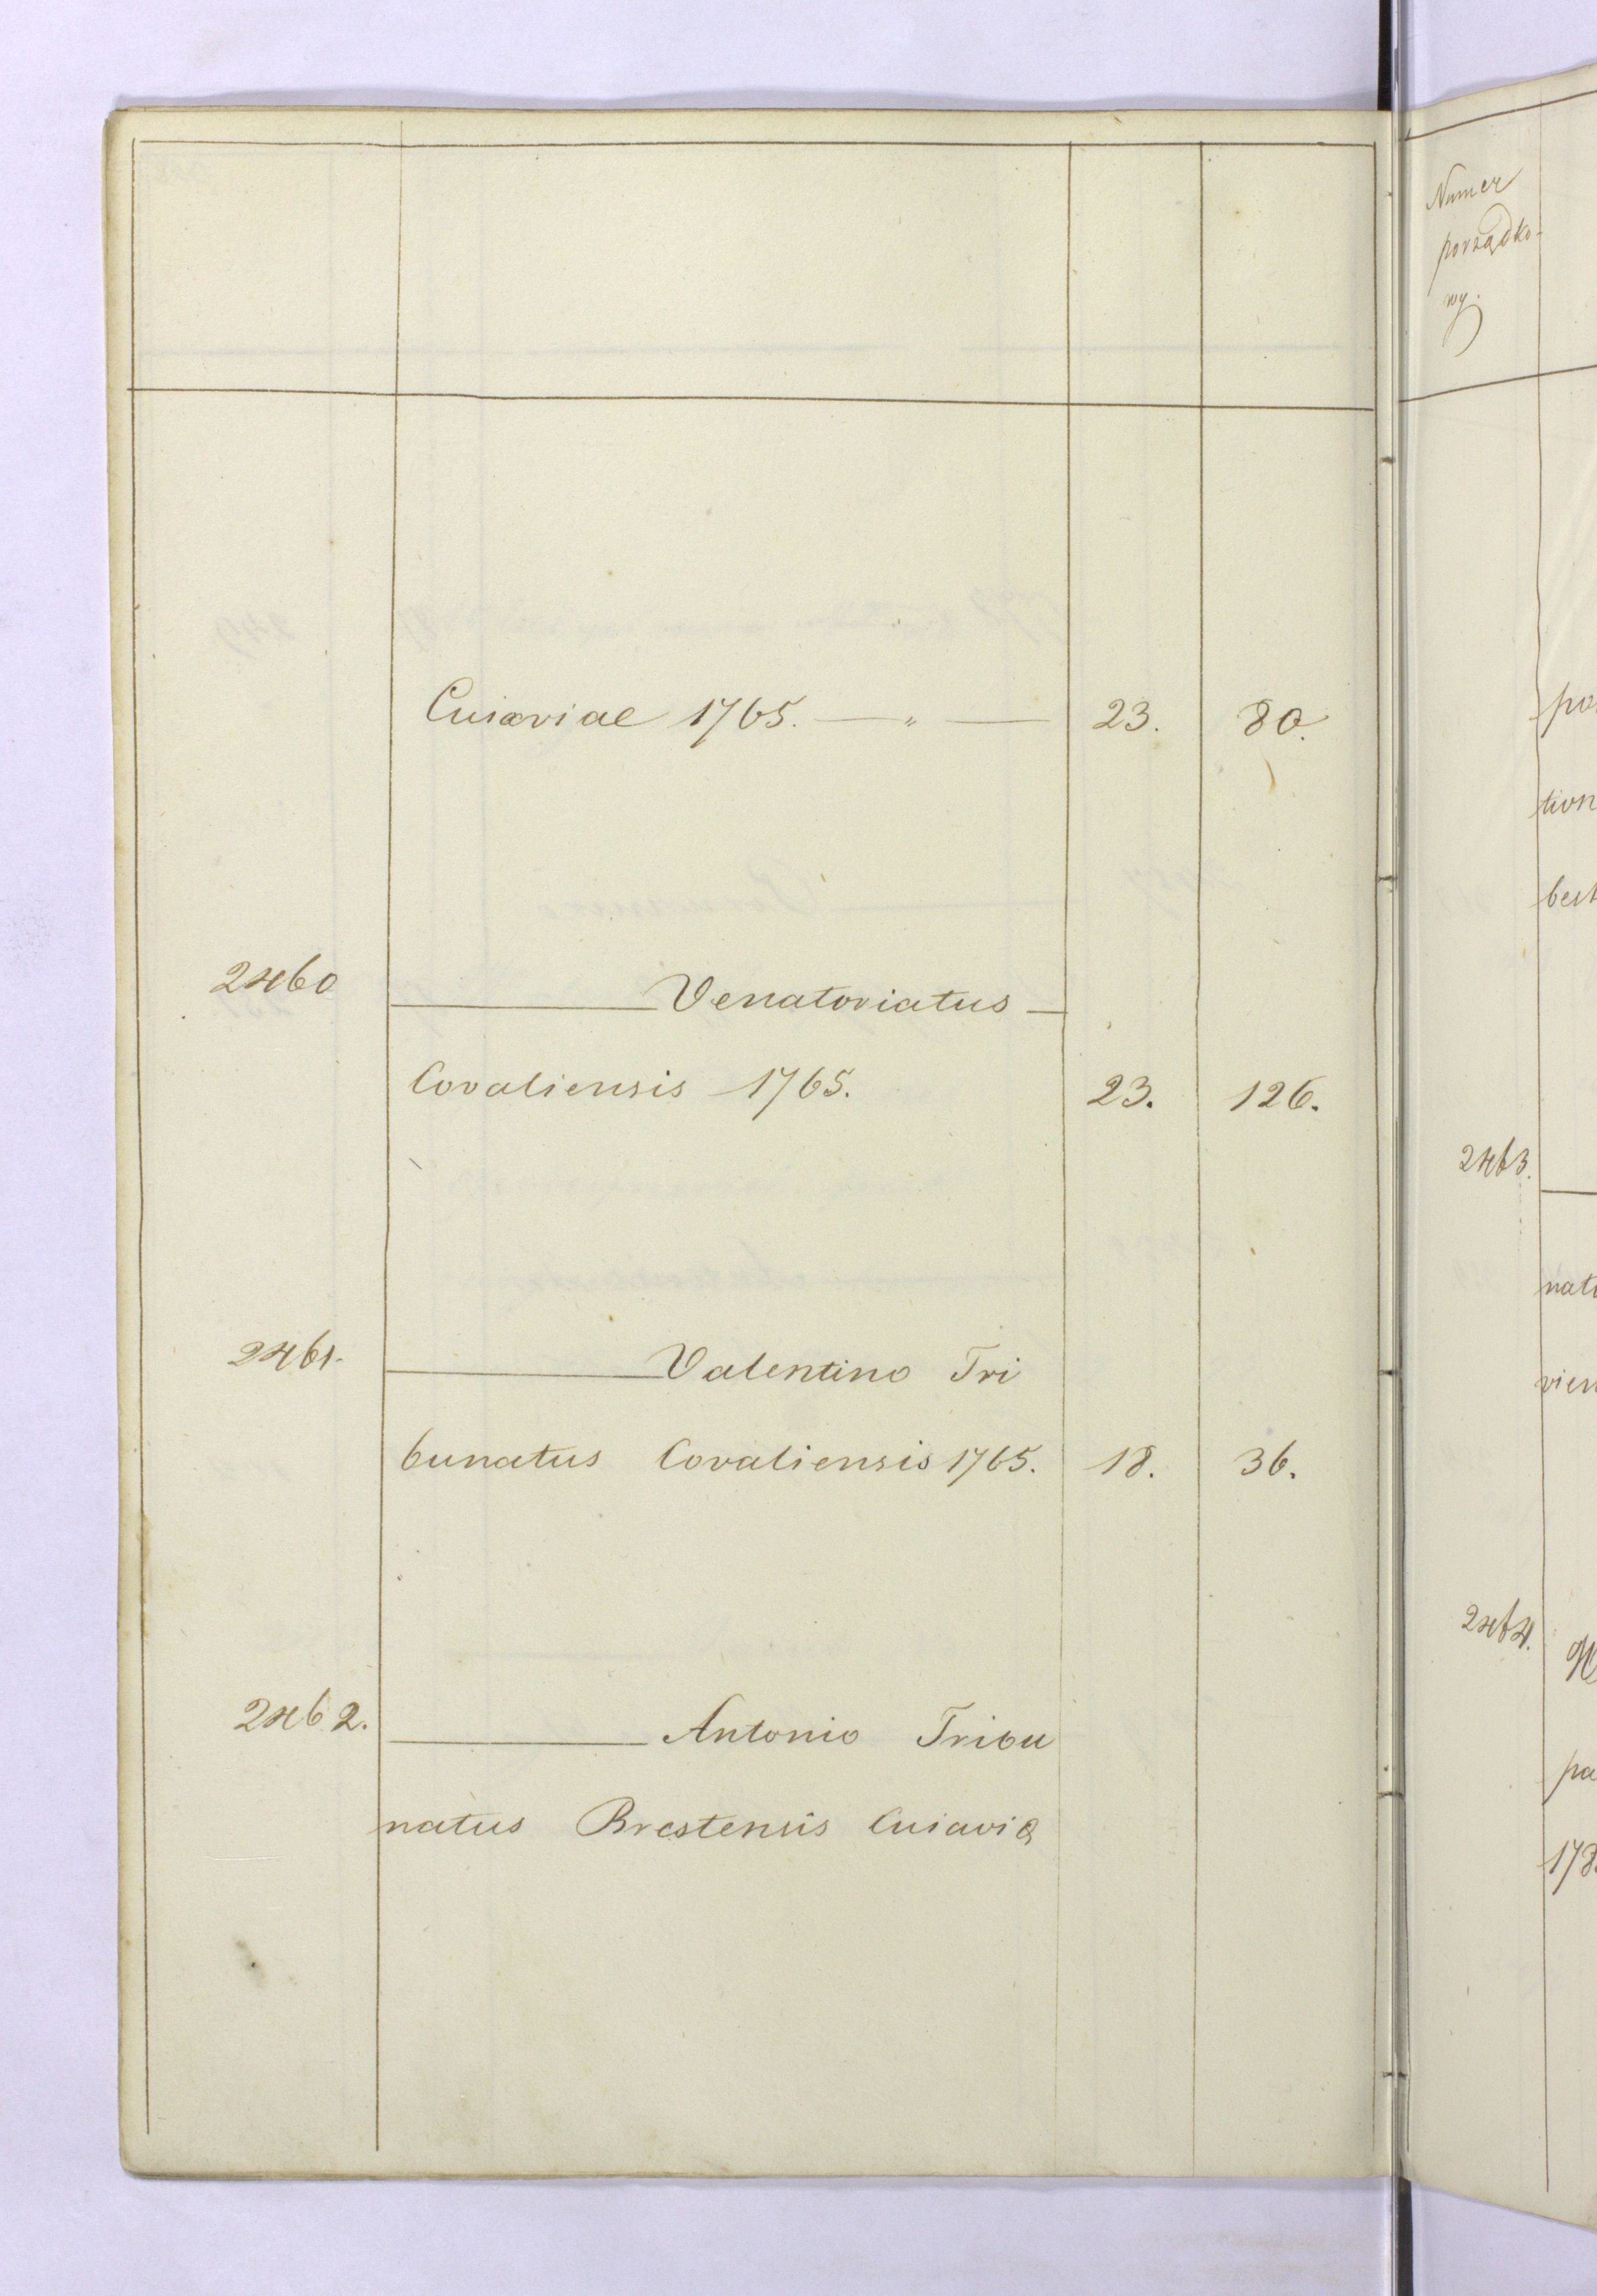 Cuiaviae 1765. — „ — 23. 80.
2460 — Venatoriatus —
Covaliensis 1765. 23. 126.
2461. — Valentino Tri
bunatus Covaliensis 1765. 18. 36.
2462. — Antonio Tribu
natus Brestensis Cuiaviæ
Numer
porządko-
wy.
tion
2463.
nat
vien
2464.
pa
178